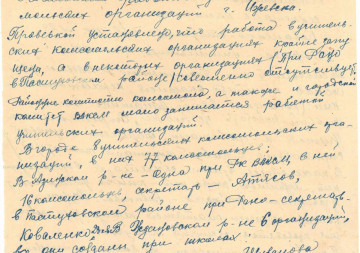 мольских организаций г. Ижевска.
Проверкой установлено, что работа в учитель-
ских комсомольских организациях крайне запу
щена, а в некоторых организациях (при Районо
в Пастуховском районе) совершенно отсутствует.
Райкомы комсомола, а также и городской
комитет ВЛКСМ мало занимаются работой
учительских организаций.
В городе 8 учительских комсомольских орга-
низаций, в них 77 комсомольцев;
В Азинском р-не - одна при РК ВЛКСМ, в ней
16 комсомольцев, секретарь - Атясов,
в Пастуховском районе при Роно - секретарь
Коваленко. В р-не 6 организаций,
все они созданы при школах: